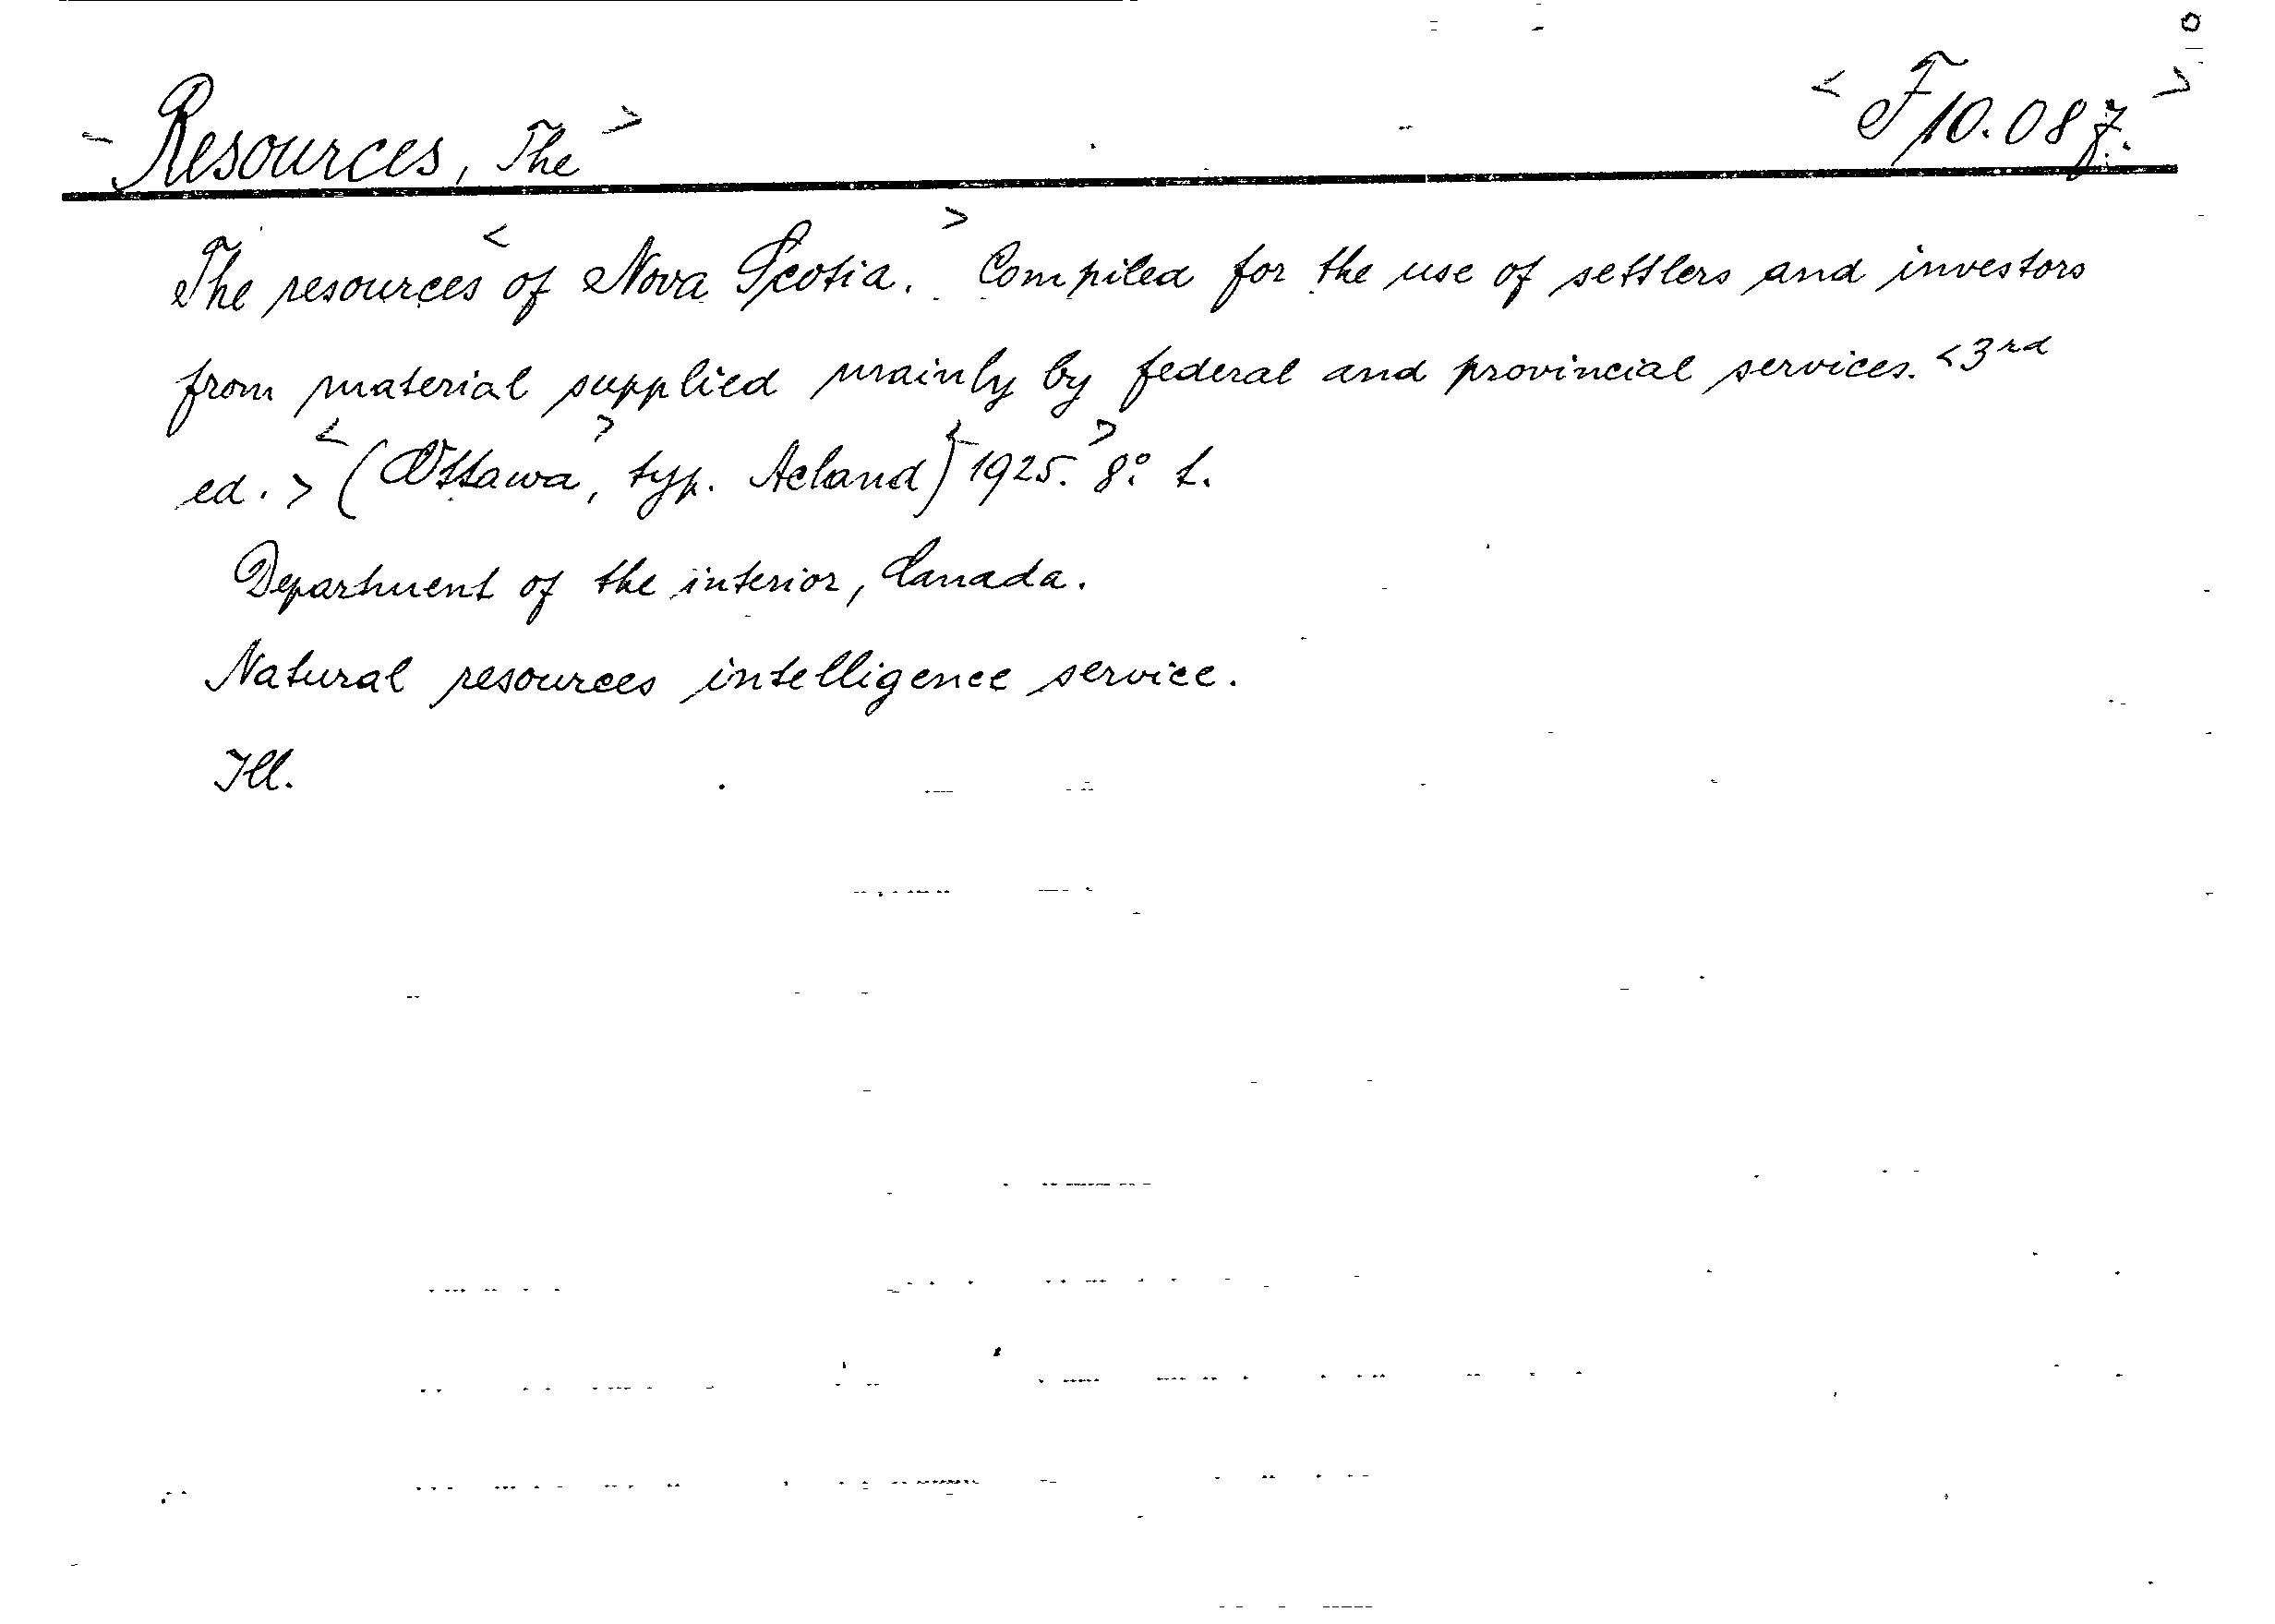 - Resources, The > < F 10.087. >
The resources < of Nova Scotia. > Compiled for the use of settlers and investors
from material supplied mainly by federal and provincial services. < 3rd
ed. > < (Ottawa >, typ. Acland) < 1925. > 8° t.
Department of the interior, Canada.
Natural resources intelligence service.
Ill.